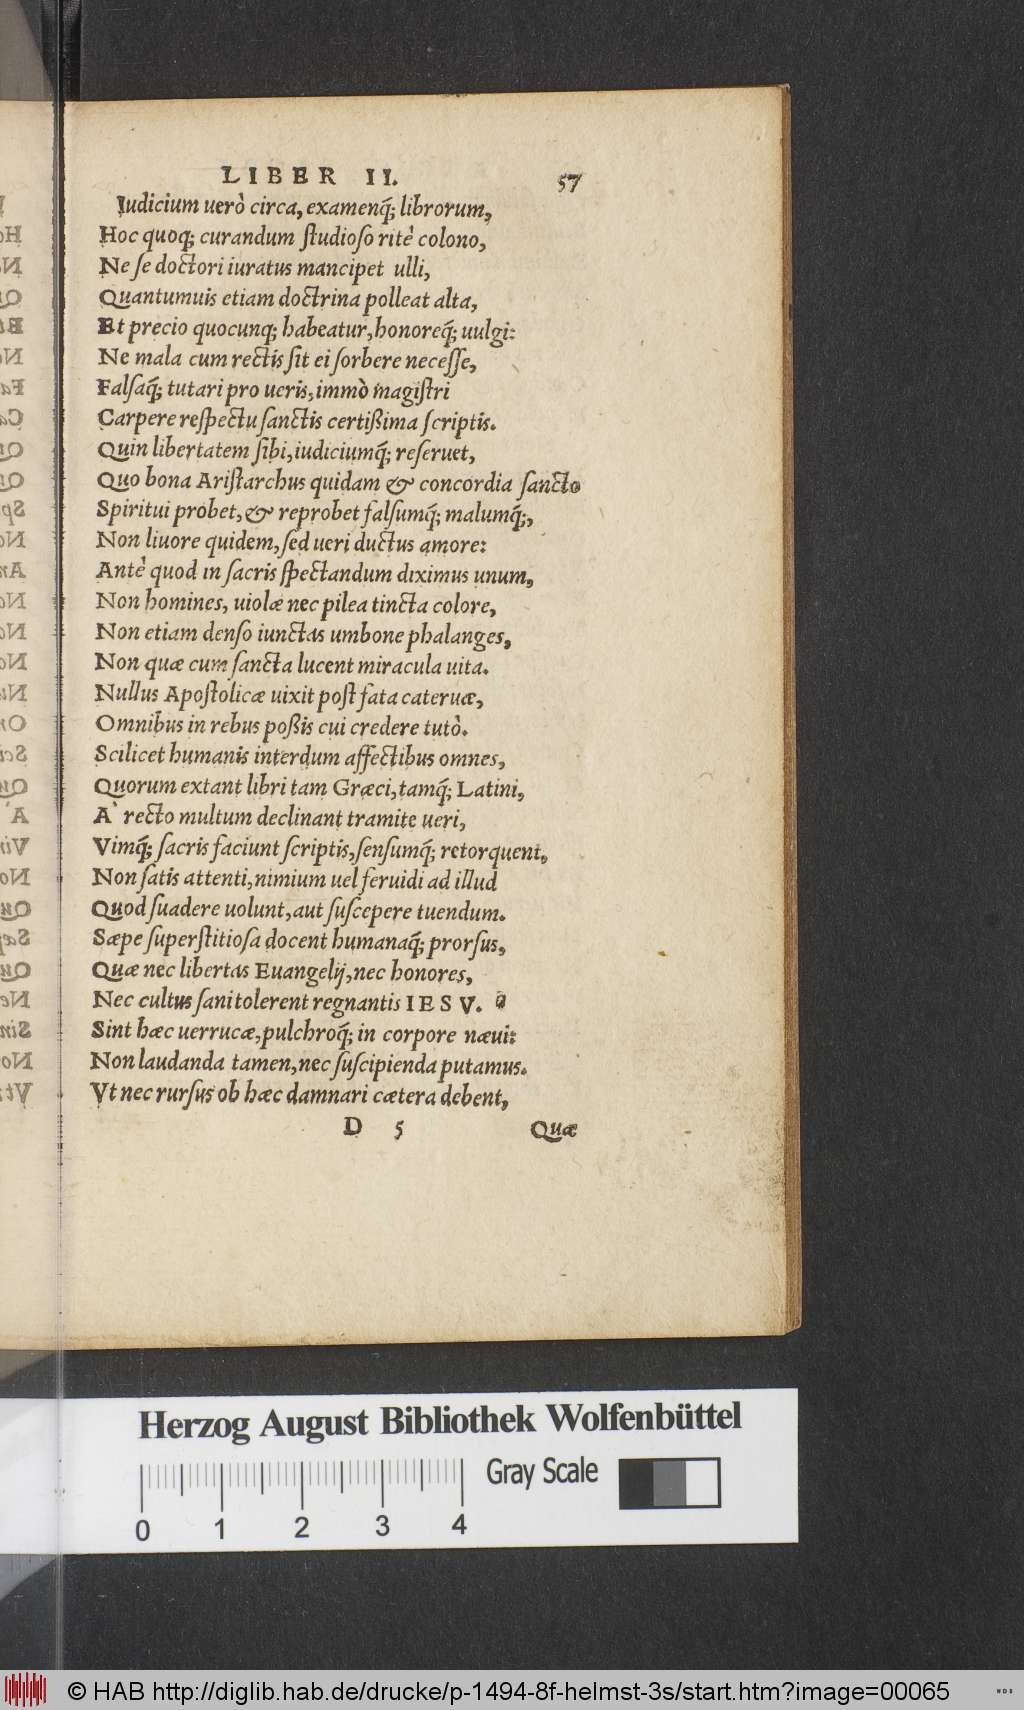 LIBER II. 57
Iudicium uerò circa, examenq́; librorum,
Hoc quoq; curandum ſtudioſo ritè colono,
Ne ſe doctori iuratus mancipet ulli,
Quantumuis etiam doctrina polleat alta,
Et precio quocunq; habeatur, honoreq́; uulgi:
Ne mala cum rectis ſit ei ſorbere neceſſe,
Falſaq́; tutari pro ueris, immò magiſtri
Carpere reſpectu ſanctis certißima ſcriptis.
Quin libertatem ſibi, iudiciumq́; reſeruet,
Quo bona Ariſtarchus quidam & concordia ſancto
Spiritui probet, & reprobet falſumq́; malumq́;,
Non liuore quidem, ſed ueri ductus amore:
Antè quod in ſacris ſpectandum diximus unum,
Non homines, uiolæ nec pilea tincta colore,
Non etiam denſo iunctas umbone phalanges,
Non quæ cum ſancta lucent miracula uita.
Nullus Apoſtolicæ uixit poſt fata cateruæ,
Omnibus in rebus poßis cui credere tutò.
Scilicet humanis interdum affectibus omnes,
Quorum extant libri tam Græci, tamq́; Latini,
A` recto multum declinant tramite ueri,
Vimq́; ſacris faciunt ſcriptis, ſenſumq́; retorquent,
Non ſatis attenti, nimium uel feruidi ad illud
Quod ſuadere uolunt, aut ſuſcepere tuendum.
Sæpe ſuperſtitioſa docent humanaq́; prorſus,
Quæ nec libertas Euangelij, nec honores,
Nec cultus ſani tolerent regnantis IESV.
Sint hæc uerrucæ, pulchroq́; in corpore næui:
Non laudanda tamen, nec ſuſcipienda putamus.
Vt nec rurſus ob hæc damnari cætera debent,
D 5 Quæ
Herzog August Bibliothek Wolfenbüttel
Gray Scale
0 1 2 3 4
© HAB http://diglib.hab.de/drucke/p-1494-8f-helmst-3s/start.htm?image=00065